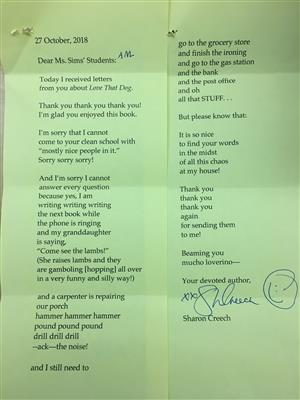 27 October, 2018
Dear Ms. Sims' Students: AM
Today I received letters
from you about Love That Dog.
Thank you thank you thank you!
I'm glad you enjoyed this book.
I'm sorry that I cannot
come to your clean school with
"mostly nice people in it."
Sorry sorry sorry!
And I'm sorry I cannot
answer every question
because yes, I am
writing writing writing
the next book while
the phone is ringing
and my granddaughter
is saying,
"Come see the lambs!"
(She raises lambs and they
are gamboling [hopping] all over
in a very funny and silly way!)
and a carpenter is repairing
our porch
hammer hammer hammer
pound pound pound
drill drill drill
--ack—the noise!
and I still need to
go to the grocery store
and finish the ironing
and go to the gas station
and the bank
and the post office
and oh
all that STUFF. . .
But please know that:
It is so nice
to find your words
in the midst
of all this chaos
at my house!
Thank you
thank you
thank you
again
for sending them
to me!
Beaming you
mucho loverino—
Your devoted author,
xx Sh Creech
Sharon Creech